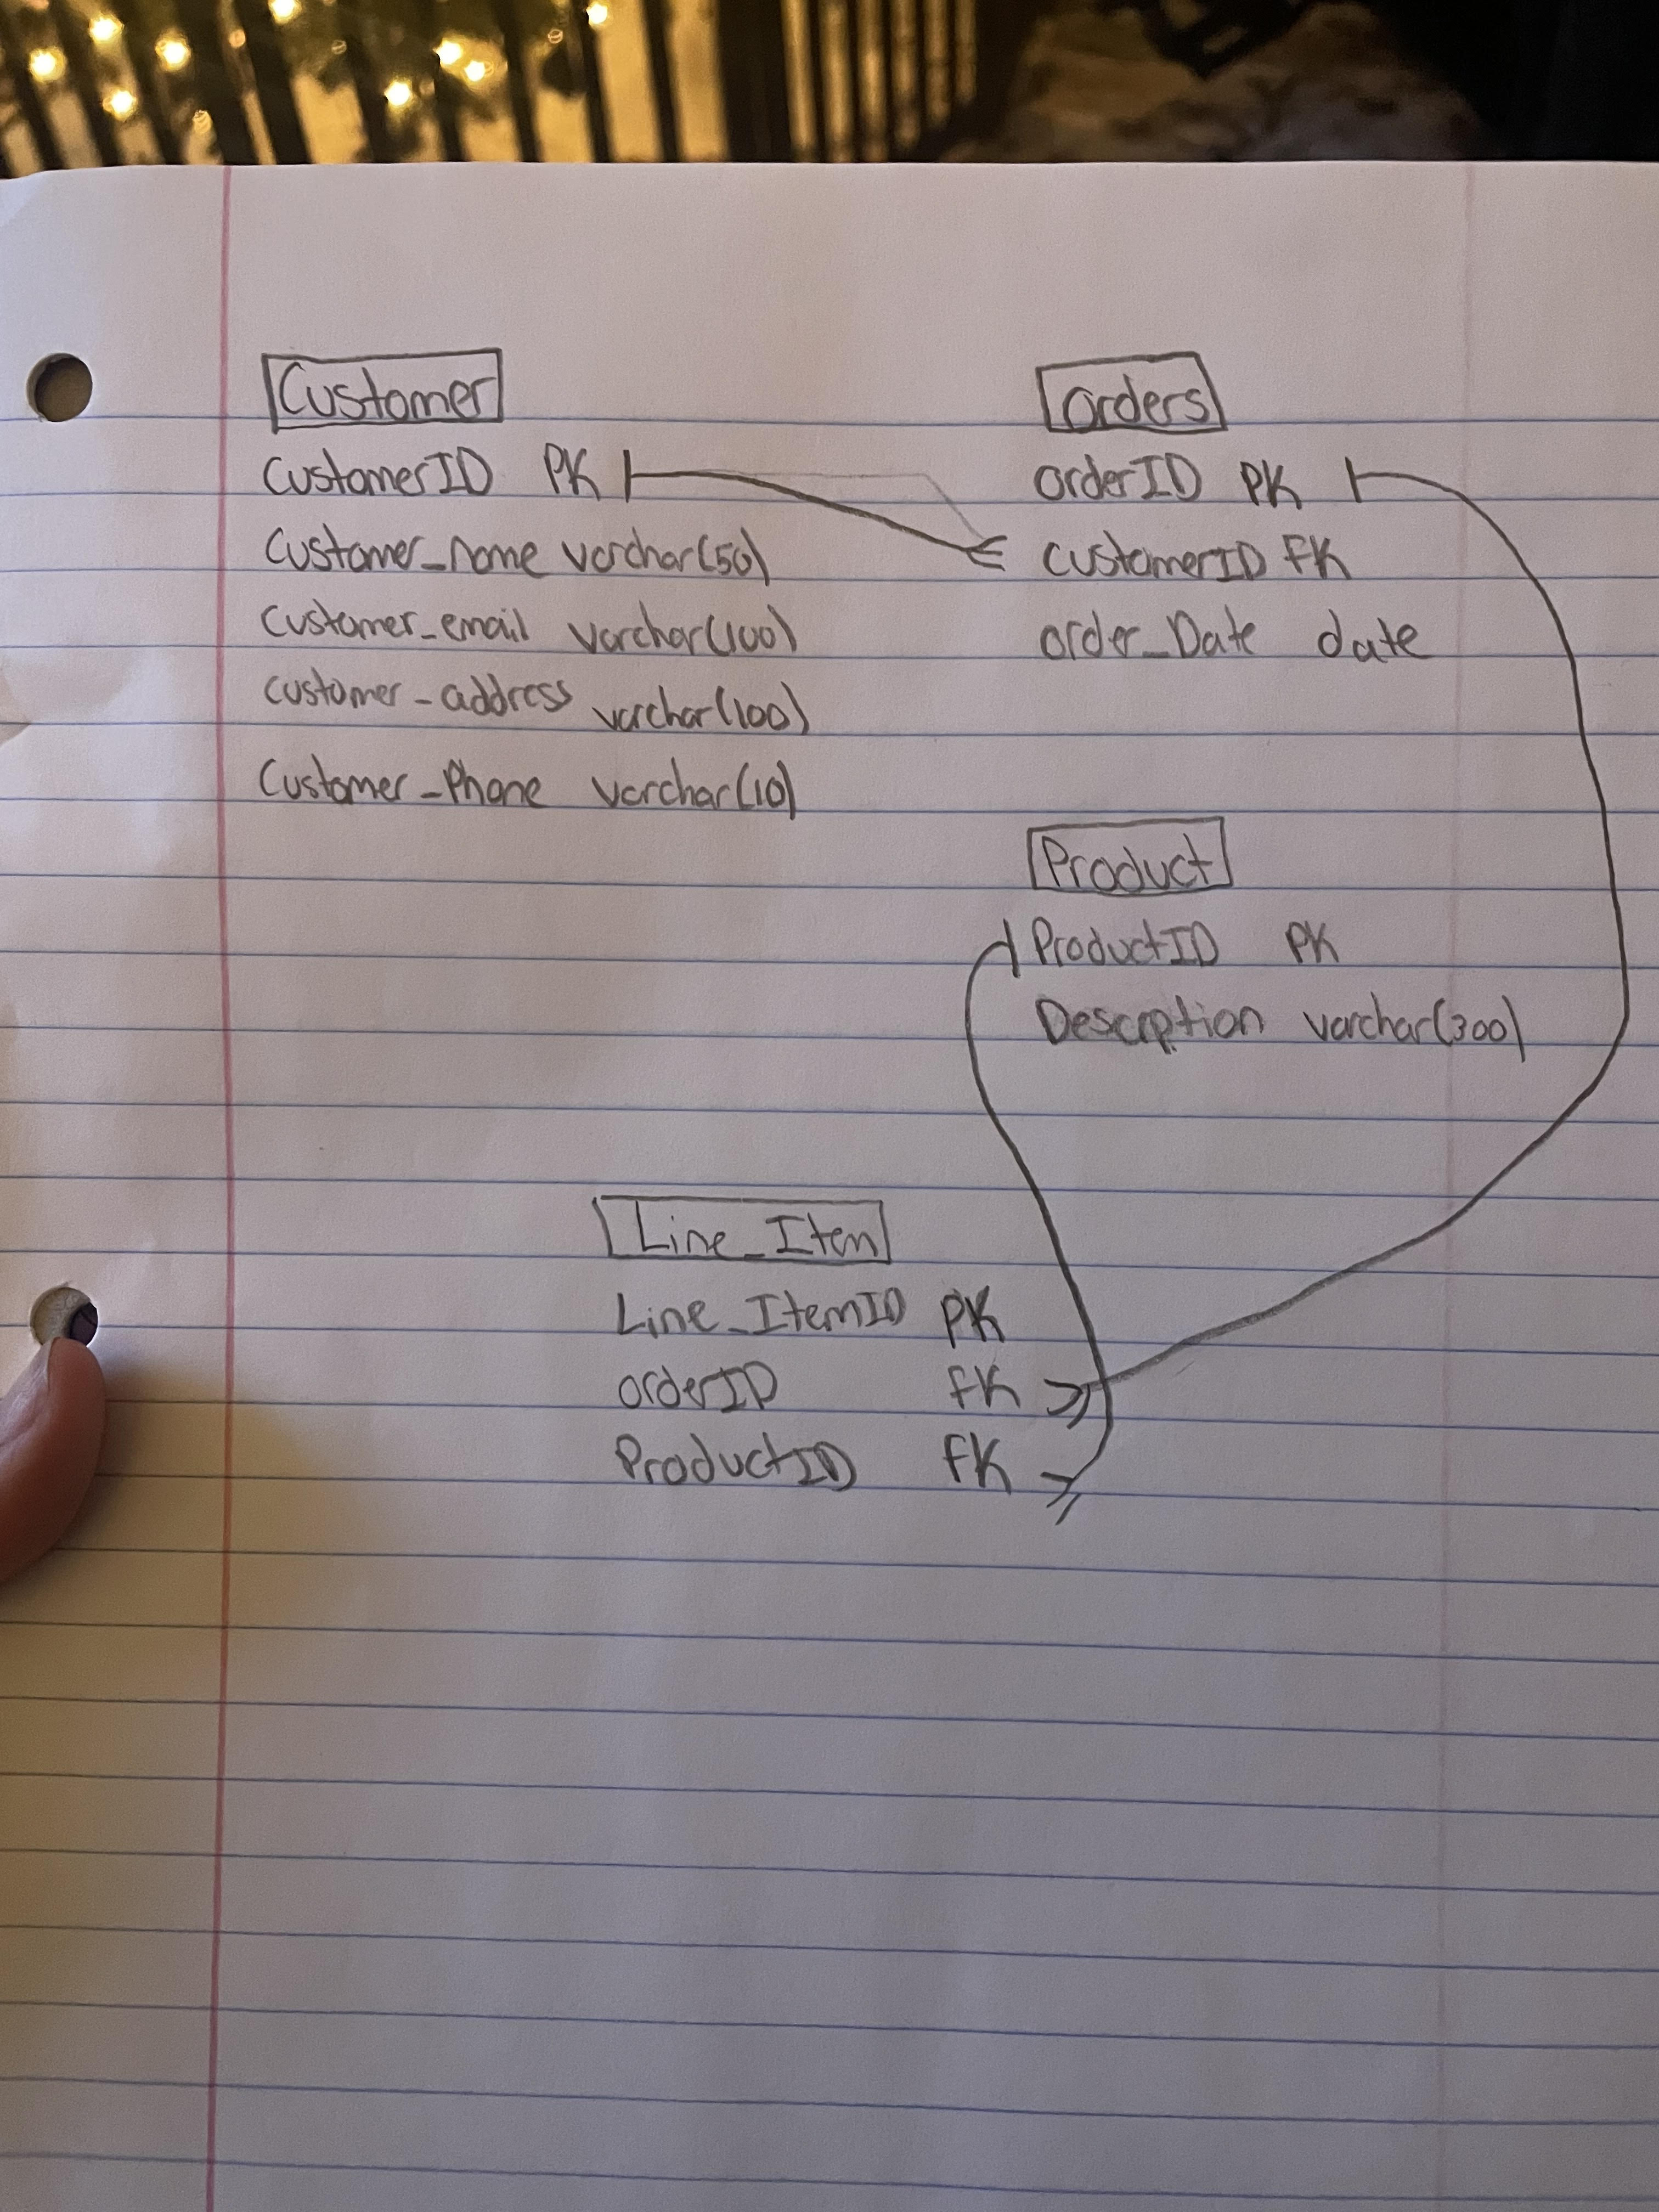 Customer
CustomerID PK
Customer_name varchar(50)
Customer_email varchar(100)
customer_address varchar(100)
Customer_Phone varchar(10)
orders
orderID PK
customerID FK
order_Date date
Product
ProductID PK
Descrption varchar(300)
Line_Item
Line_ItemID PK
orderID FK
ProductID FK